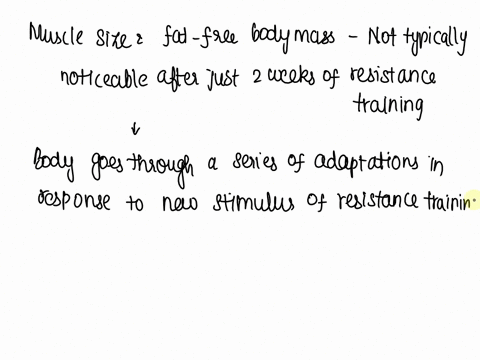 Muscle size & fat-free body mass - Not typically
noticeable after just 2 weeks of resistance
training
↓
Body goes through a series of adaptations in
response to new stimulus of resistance trainin